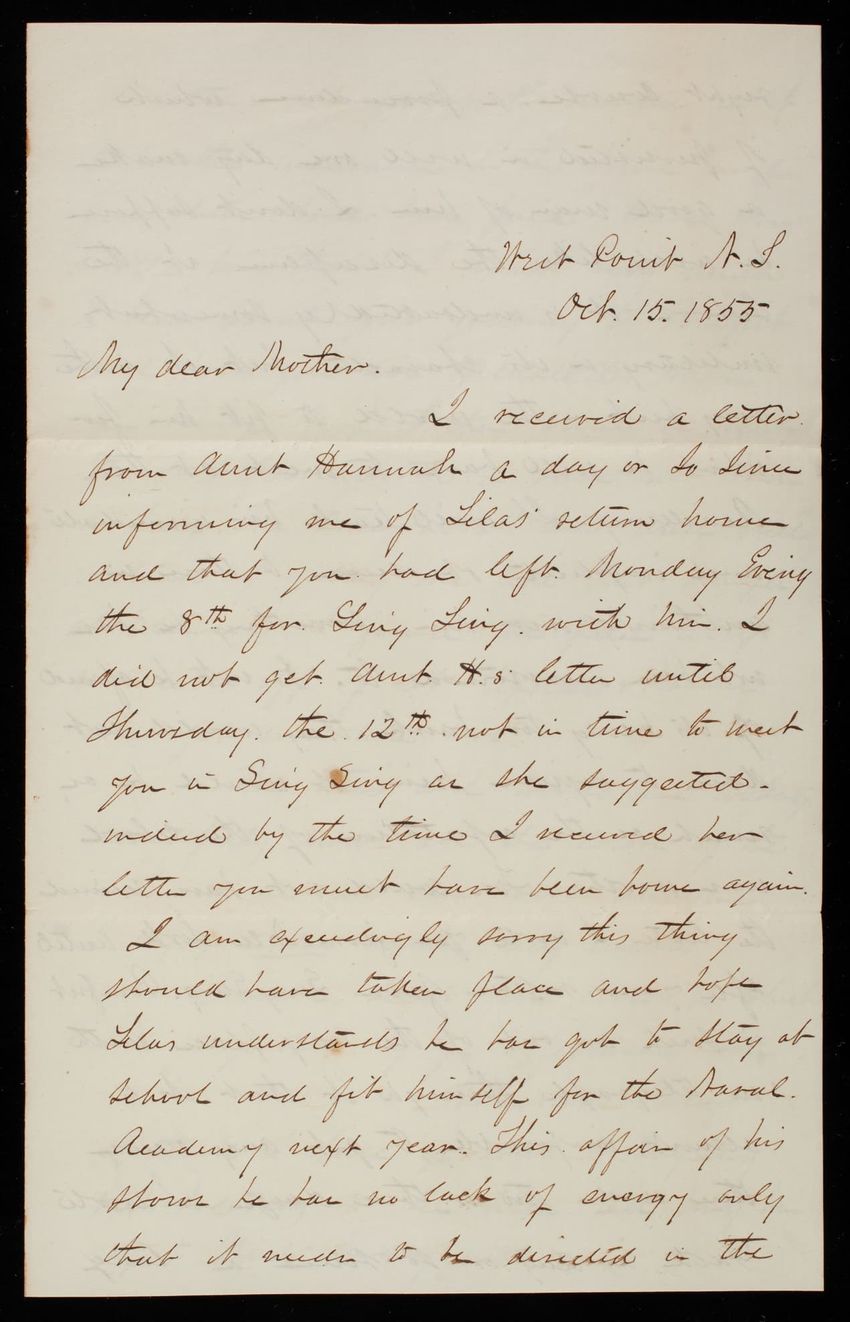 West Point N.Y.
Oct. 15. 1855
My dear Mother.
I received a letter
from Aunt Hannah a day or so since
informing me of Silas' return home
and that you had left Monday Eveing
the 8th for Sing Sing with him. I
did not get Aunt H.s letter until
Thursday. the 12th not in time to meet
you in Sing Sing as she suggested -
indeed by the time I received her
letter you must have been home again.
I am exceedingly sorry this thing
should have taken place and hope
Silas understands he has got to stay at
school and fit himself for the Naval.
Academy next year. This affair of his
shows he has no lack of energy only
that it needs to be directed in the